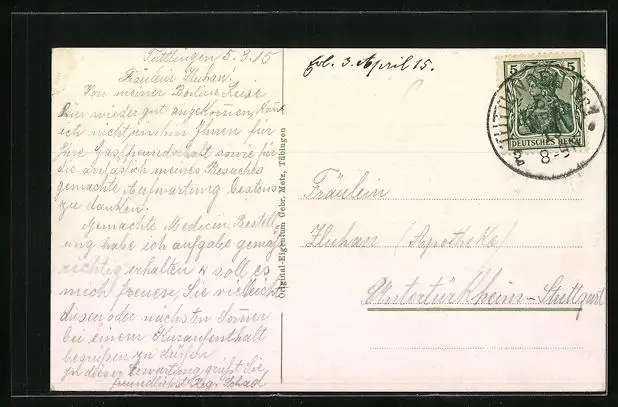 Tuttlingen 5.3.15
Fräulein Fluhan.
Von meiner Berliner Reise
bin wieder gut angekommen, kann
ich nicht umhin Ihnen für
Ihre Gastfreundschaft sowie für
die anläslich meines Besuches
gemachte Aufwartung bestens
zu danken.
Gemachte Medicin Bestell
ung habe ich aufgabe gemäß
richtig erhalten & soll es
mich freuen, Sie vielleicht
diesen oder nächsten Sommer
bei einem Kuraufenthalt
begrüßen zu dürfen
In dieser Erwartung grüßt Sie
freundlichst Reg. Schad
Original-Eigentum Gebr. Metz, Tübingen
3. April 15.
5 5
DEUTSCHES REICH
TUTTLINGEN
8-9
Fräulein
Fluhan (Apotheke)
Untertürkheim-Stuttgart